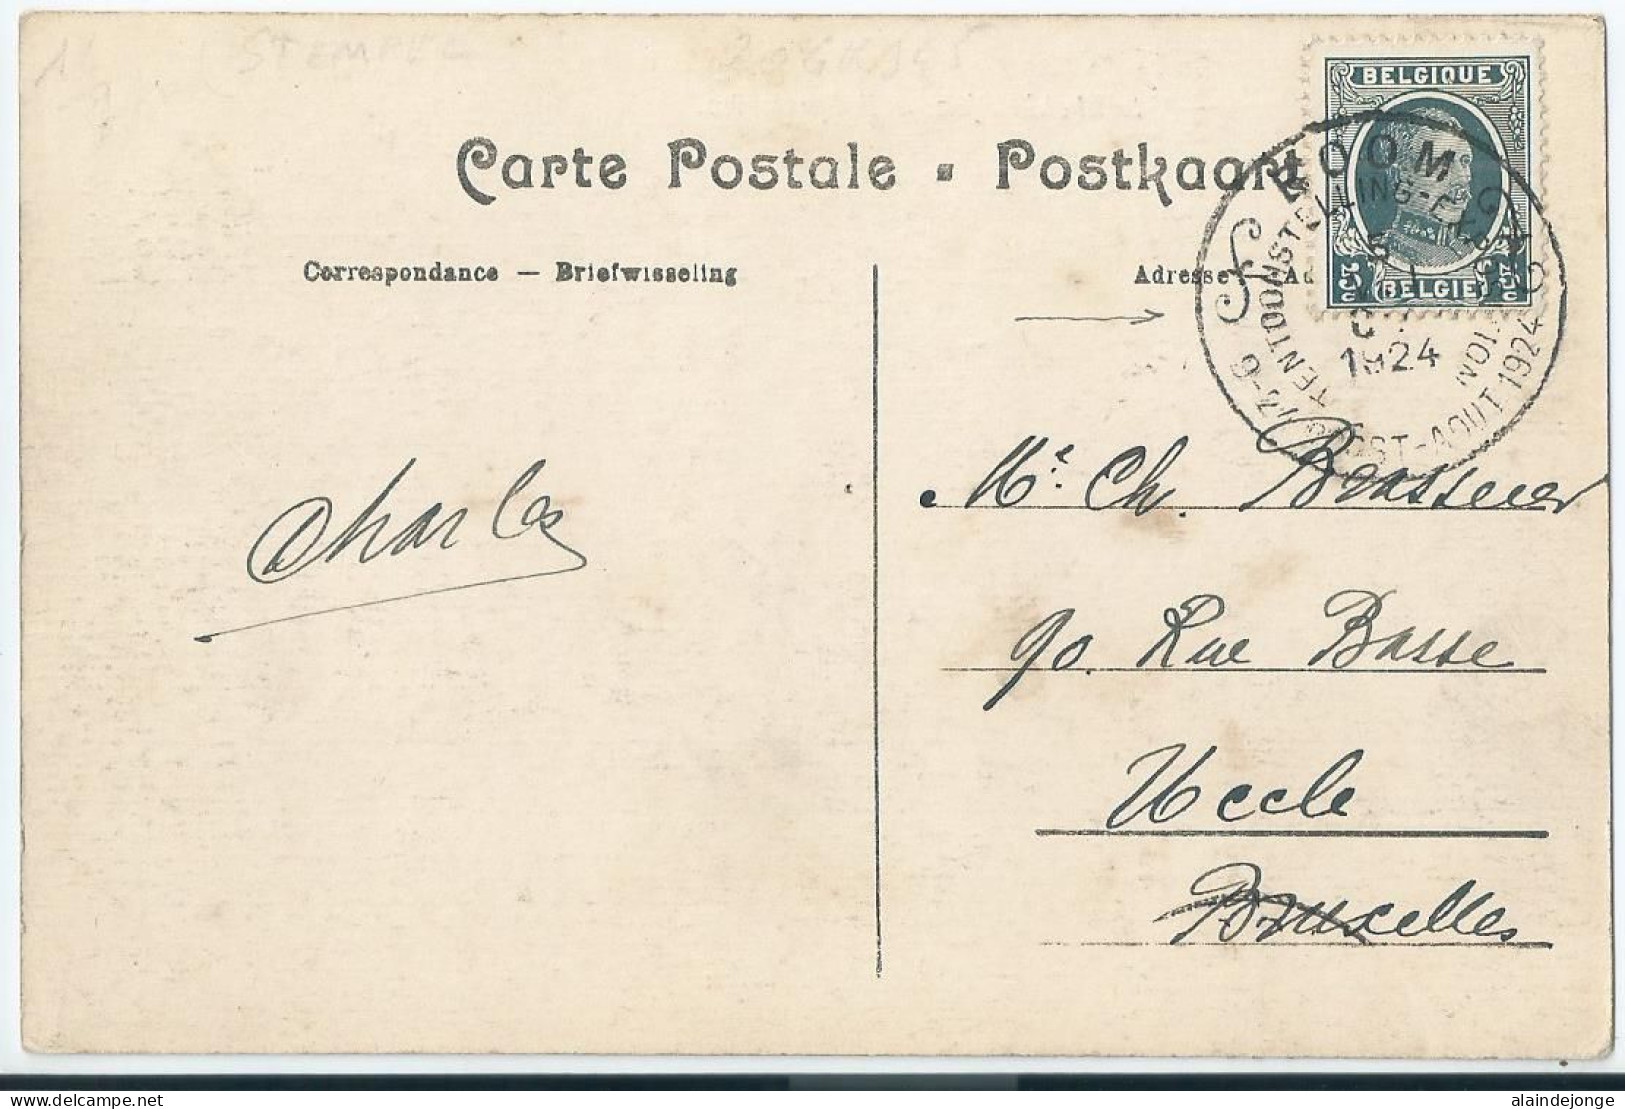 STEMPEL
Carte Postale - Postkaart
BELGIQUE
25c 25c
BELGIË
BOOM
TENTOONSTELLING-EXPOSITION
5
1924
OOGST-AOUT 1924
Correspondance — Briefwisseling
Adresse - Ad
Charles
Mr. Ch. Brasseur
90. Rue Basse
Uccle
Bruxelles
delcampe.net
alaindejonge